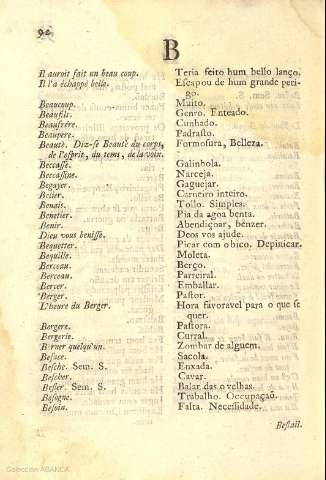 92
B
Il auroit fait un beau coup. Teria feito hum bello lanço.
Il l'a échappé belle. Escapou de hum grande peri-
go.
Beaucoup. Muito.
Beaufils. Genro. Enteado.
Beaufrére. Cunhado.
Beaupere. Padrasto.
Beauté. Diz-se Beauté du corps, Formosura, Belleza.
de l'esprit, du tems, de la voix.
Beccasse. Galinhola.
Beccassine. Narceja.
Begayer. Gaguejar.
Belier. Carneiro inteiro.
Benêt. Tollo. Simples.
Benetier. Pia da agoa benta.
Benir. Abendiçoar, benzer.
Dieu vous benisse. Deos vos ajude.
Bequetter. Picar com o bico. Depinicar.
Bequille. Moleta.
Berceau. Berço.
Berceau. Parreiral.
Bercer. Emballar.
Berger. Pastor.
L'heure du Berger. Hora favoravel para o que se
quer.
Bergere. Pastora.
Bergerie. Curral.
Berner quelqu'un. Zombar de alguem.
Besace. Sacola.
Besche. Sem. S. Enxada.
Bescher. Cavar.
Besler. Sem. S. Balar das ovelhas.
Besogne. Trabalho. Occupação.
Besoin. Falta. Necessidade.
Bestail.
Colección ABANCA